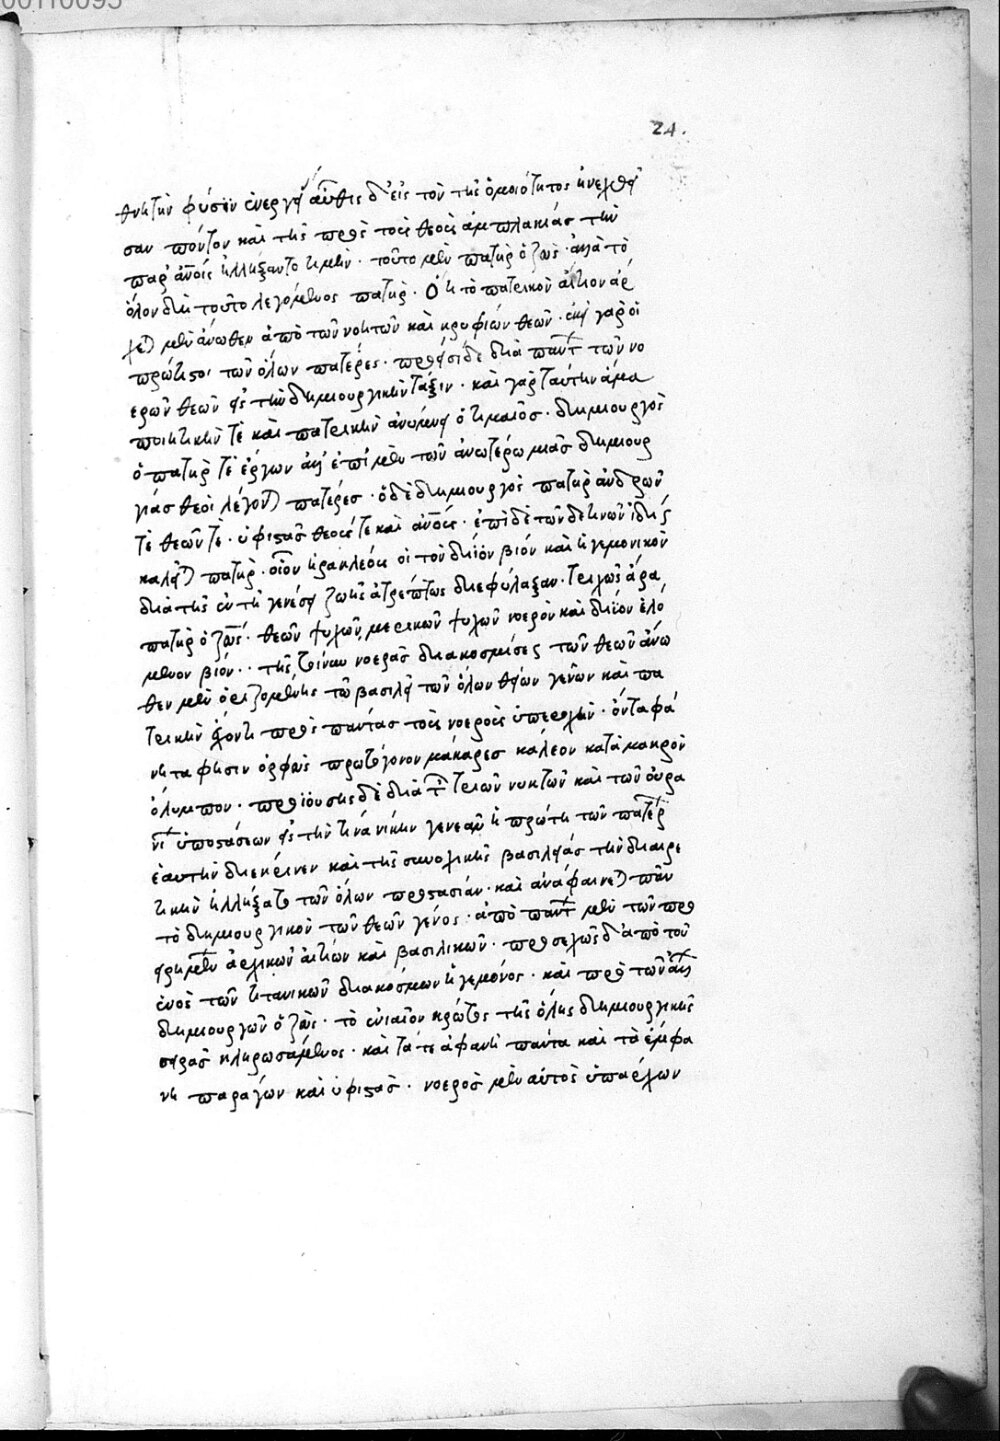 24.
θνητὴν φύσιν ἐνεργεῖ αὖθις δ' εἰς τὸν τῆς ὁμοιότητος ἠνέχθη
σαν πόντον καὶ τῆς πρὸς τοὺς θεοὺς ἀμπλακίας τὴν
παρ' ἀνοις ἠλλάξαντο τιμὴν · τοῦτο μὲν πατὴρ ὁ ζεὺς · ἀλλὰ τὸ
ὅλον διὰ τοῦτο λεγόμενος πατὴρ · Ὅτι τὸ πατρικὸν αἴτιον ἄρ
χεται μὲν ἄνωθεν ἀπὸ τῶν νοητῶν καὶ κρυφίων θεῶν · ἐκεῖ γὰρ οἱ
πρώτιστοι τῶν ὅλων πατέρες · πρόεισι δὲ διὰ πάντων τῶν νο
ερῶν θεῶν εἰς τὴν δημιουργικὴν τάξιν · καὶ γὰρ ταύτην ἅμα
ποιητικὴν τὲ καὶ πατρικὴν ἀνυμνεῖ ὁ τίμαιος · δημιουργὸς
ὁ πατήρ τὲ ἔργων ἀλλ' ἐπὶ μὲν τῶν ἀνωτέρω μιᾶς δημιουρ
γίας θεοὶ λέγονται πατέρες · ὁ δὲ δημιουργὸς πατὴρ ἀνδρῶν
τὲ θεῶν τὲ · ὑφιστὰς θεούς τε καὶ ἀνους · ἐπὶ δὲ τῶν δεινῶν ἰδίως
καλεῖται πατὴρ · οἷον ἡρακλέους οἱ τὸν δίιον βίον καὶ ἡγεμονικὸν
διὰ τῆς ἐν τῇ γενέσει ζωῆς ἀτρέπτως διεφύλαξαν · τριχῶς ἄρα
πατὴρ ὁ ζεὺς · θεῶν ψυχῶν, μερικῶν ψυχῶν νοερὸν καὶ δίιον ἑλο
μένων βίον · · τῆς τοίνυν νοερᾶς διακοσμήσεως τῶν θεῶν ἄνω
θεν μὲν ὁριζομένης τῷ βασιλεῖ τῶν ὅλων θείων γενῶν καὶ πα
τρικὴν ἔχοντι πρὸς πάντας τοὺς νοεροὺς ὑπεροχὴν · ὅν τε φά
νητα φησιν ὀρφεὺς πρωτόγονον μάκαρες κάλεον κατὰ μακρὸν
ὄλυμπον · προϊούσης δὲ διὰ τῶν τριῶν νυκτῶν καὶ τῶν οὐρα
νίων ὑποστάσεων εἰς τὴν τιτανικὴν γενεὰν ἣ πρώτη τῶν πατέρων
ἑαυτὴν διέκρινεν καὶ τῆς συνοχικῆς βασιλείας τὴν διαιρε
τικὴν ἠλλάξατο τῶν ὅλων προστασίαν · καὶ ἀναφαίνεται πᾶν
τὸ δημιουργικὸν τῶν θεῶν γένος · ἀπὸ πάντων μὲν τῶν προ
εἰρημένων ἀρχικῶν αἰτίων καὶ βασιλικῶν · προσεχῶς δ' ἀπὸ τοῦ
ἑνὸς τῶν τιτανικῶν διακόσμων ἡγεμόνος · καὶ πρὸ τῶν ἄλλων
δημιουργῶν ὁ ζεὺς · τὸ ἑνιαῖον κράτος τῆς ὅλης δημιουργικῆς
σειρᾶς κληρωσάμενος · καὶ τά τε ἀφανῆ πάντα καὶ τὰ ἐμφα
νῆ παράγων καὶ ὑφιστὰς · νοερὸς μὲν αὐτὸς ὑπάρχων